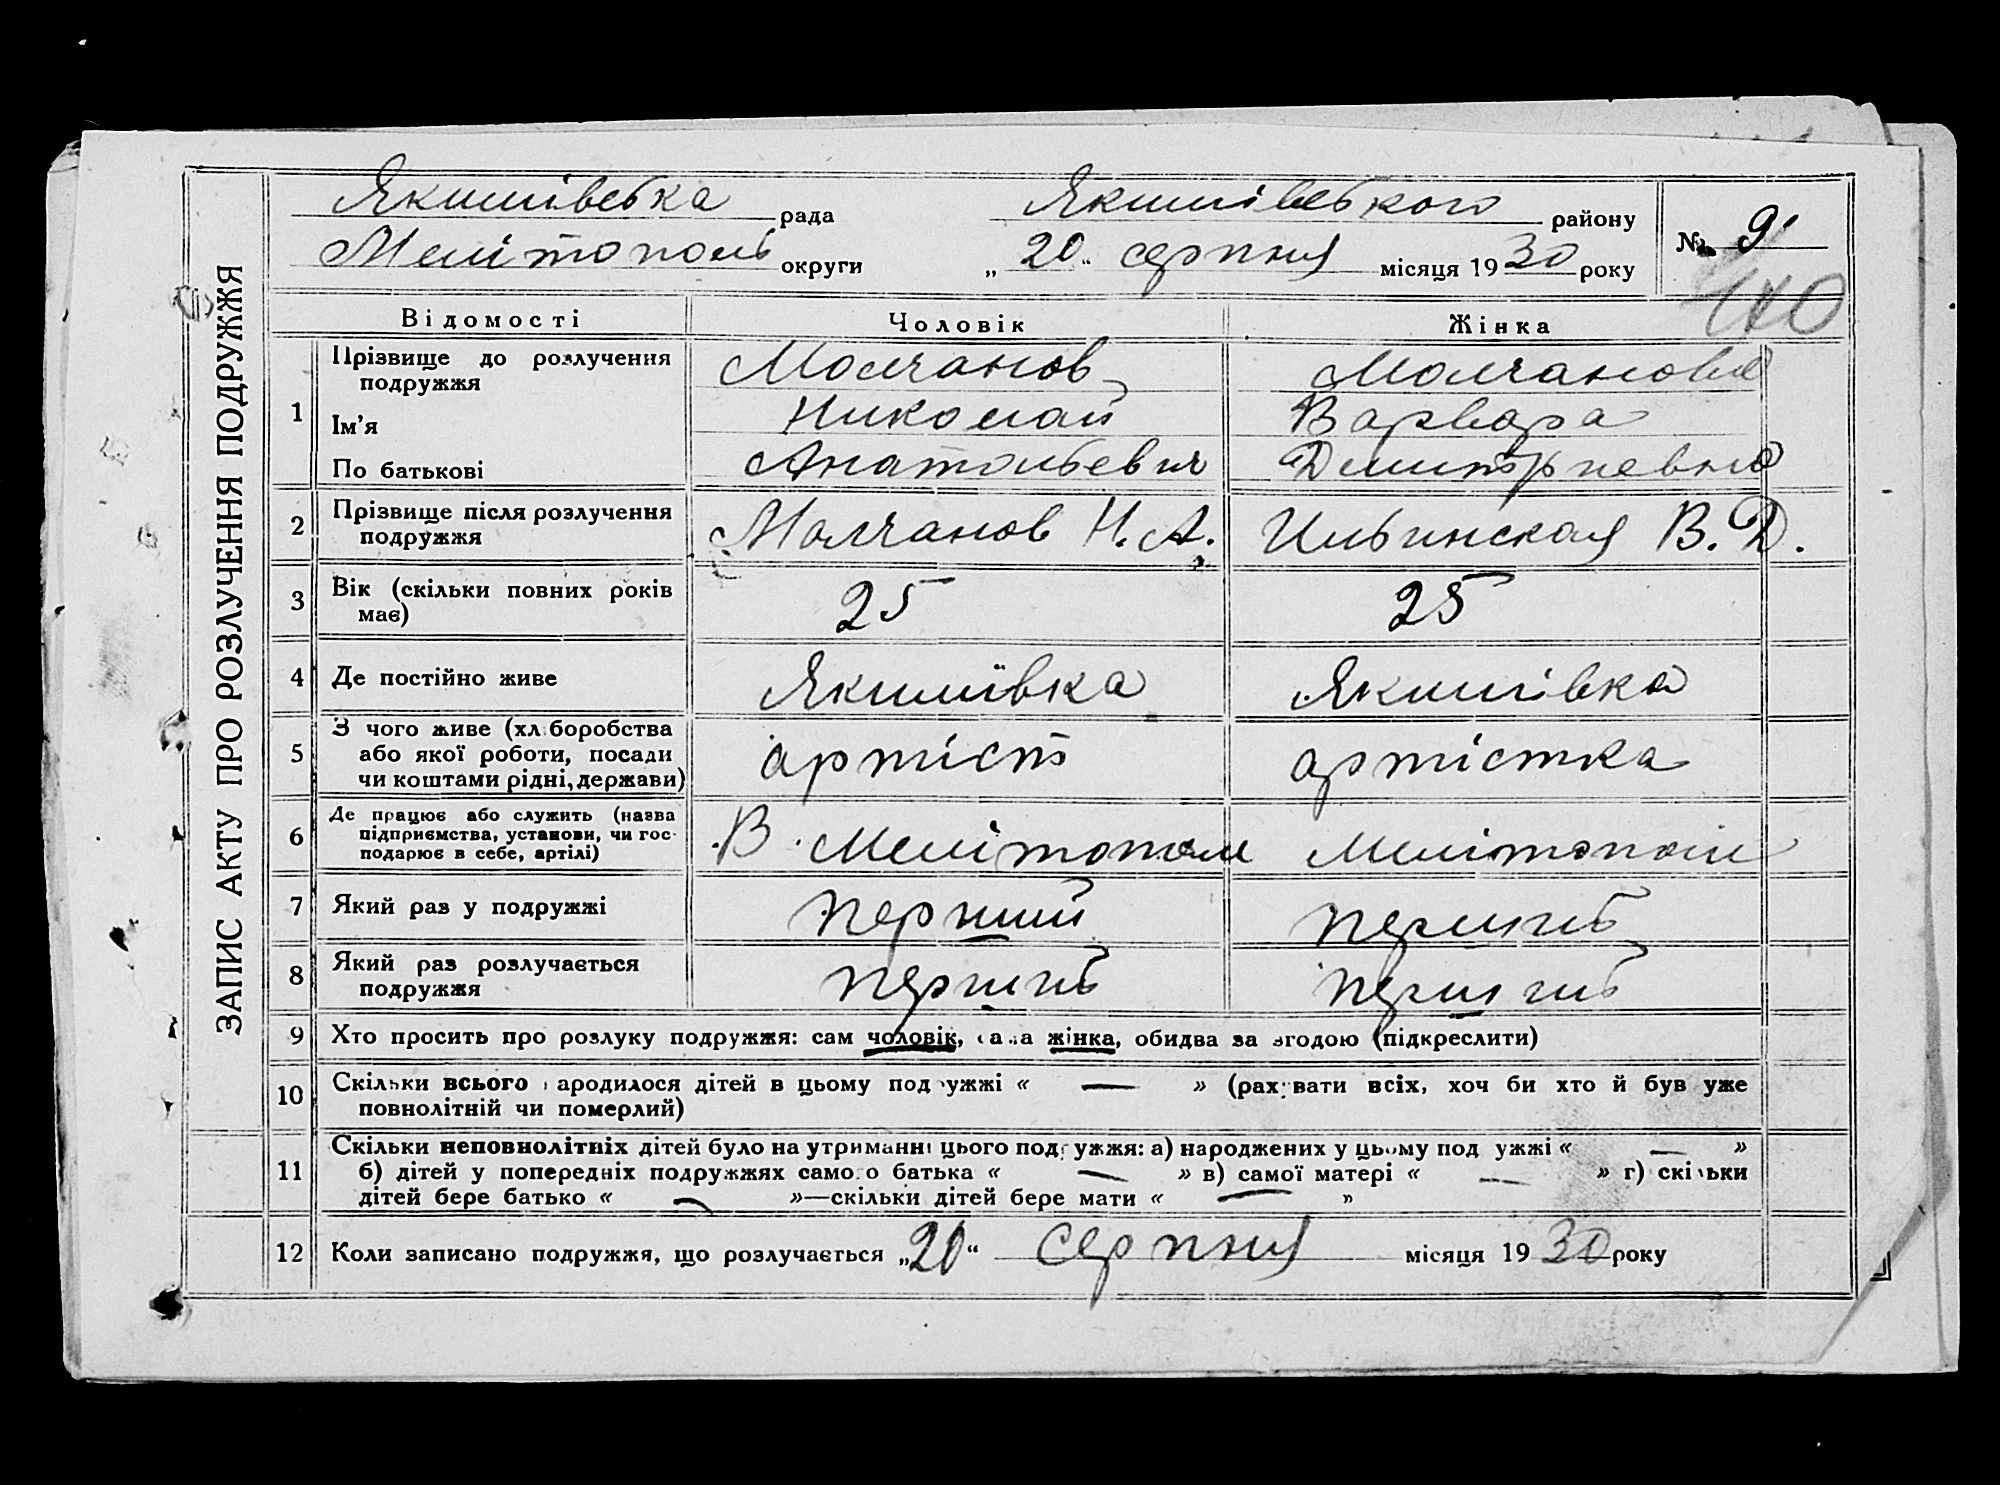 ЗАПИС АКТУ ПРО РОЗЛУЧЕННЯ ПОДРУЖЖЯ
Якимівська рада Якимівського району № 9
Мелітополь округи „ 20 “ серпня місяця 1930 року
140
Відомості Чоловік Жінка
1 Прізвище до розлучення подружжя Молчанов Молчанова
Ім'я Николай Варвара
По батькові Анатольевич Дмитриевна
2 Прізвище після розлучення подружжя Молчанов Н. А. Ильинская В. Д.
3 Вік (скільки повних років має) 25 25
4 Де постійно живе Якимівка Якимівка
5 З чого живе (хліборобства або якої роботи, посади чи коштами рідні, держави) артіст артістка
6 Де працює або служить (назва підприємства, установи, чи господарює в себе, артілі) В Мелітополе Мелітополе
7 Який раз у подружжі перший перший
8 Який раз розлучається подружжя перший перший
9 Хто просить про розлуку подружжя: сам чоловік, сама жінка, обидва за згодою (підкреслити)
10 Скільки всього народилося дітей в цьому подружжі « — » (рахувати всіх, хоч би хто й був уже
повнолітній чи померлий)
11 Скільки неповнолітніх дітей було на утриманні цього подружжя: а) народжених у цьому подружжі « — »
б) дітей у попередніх подружжях самого батька « — » в) самої матері « — » г) скільки
дітей бере батько « — »—скільки дітей бере мати « — »
12 Коли записано подружжя, що розлучається „20“ серпня місяця 1930 року